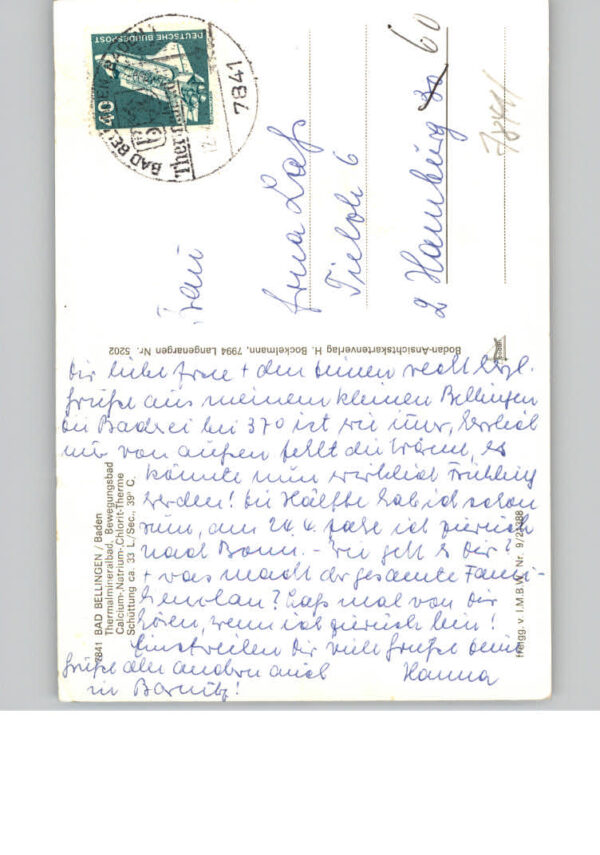 DEUTSCHE BUNDESPOST
40
7841
BAD BEL
Ther
Frau
Erna Laß
Tieloh 6
2 Hamburg 30 60
7841
Bodan-Ansichtskartenverlag H. Bockelmann, 7994 Langenargen Nr. 5202
7841 BAD BELLINGEN / Baden
Thermalmineralbad, Bewegungsbad
Calcium-,Natrium-,Chlorit-Therme
Schüttung ca. 33 L/Sec., 39° C.
Dir liebe Erna + den Deinen recht herzl.
Grüße aus meinem kleinen Bellingen
die Baderei bei 37° ist wie immer, herrlich
nur von außen fehlt die Wärme, es
könnte nun wirklich Frühling
werden! Die Hälfte hab ich schon
rum, am 24.4. fahre ich zurück
nach Bonn. - Wie geht es Dir?
+ was macht der gesamte Fami-
lienclan? Laß mal von Dir
hören, wenn ich zurück bin!
Einstweilen Dir viele Grüße Deine
Hanna
grüße alle andern auch
in Barnitz!
Freigg. v. I.M.B.W. Nr. 9/